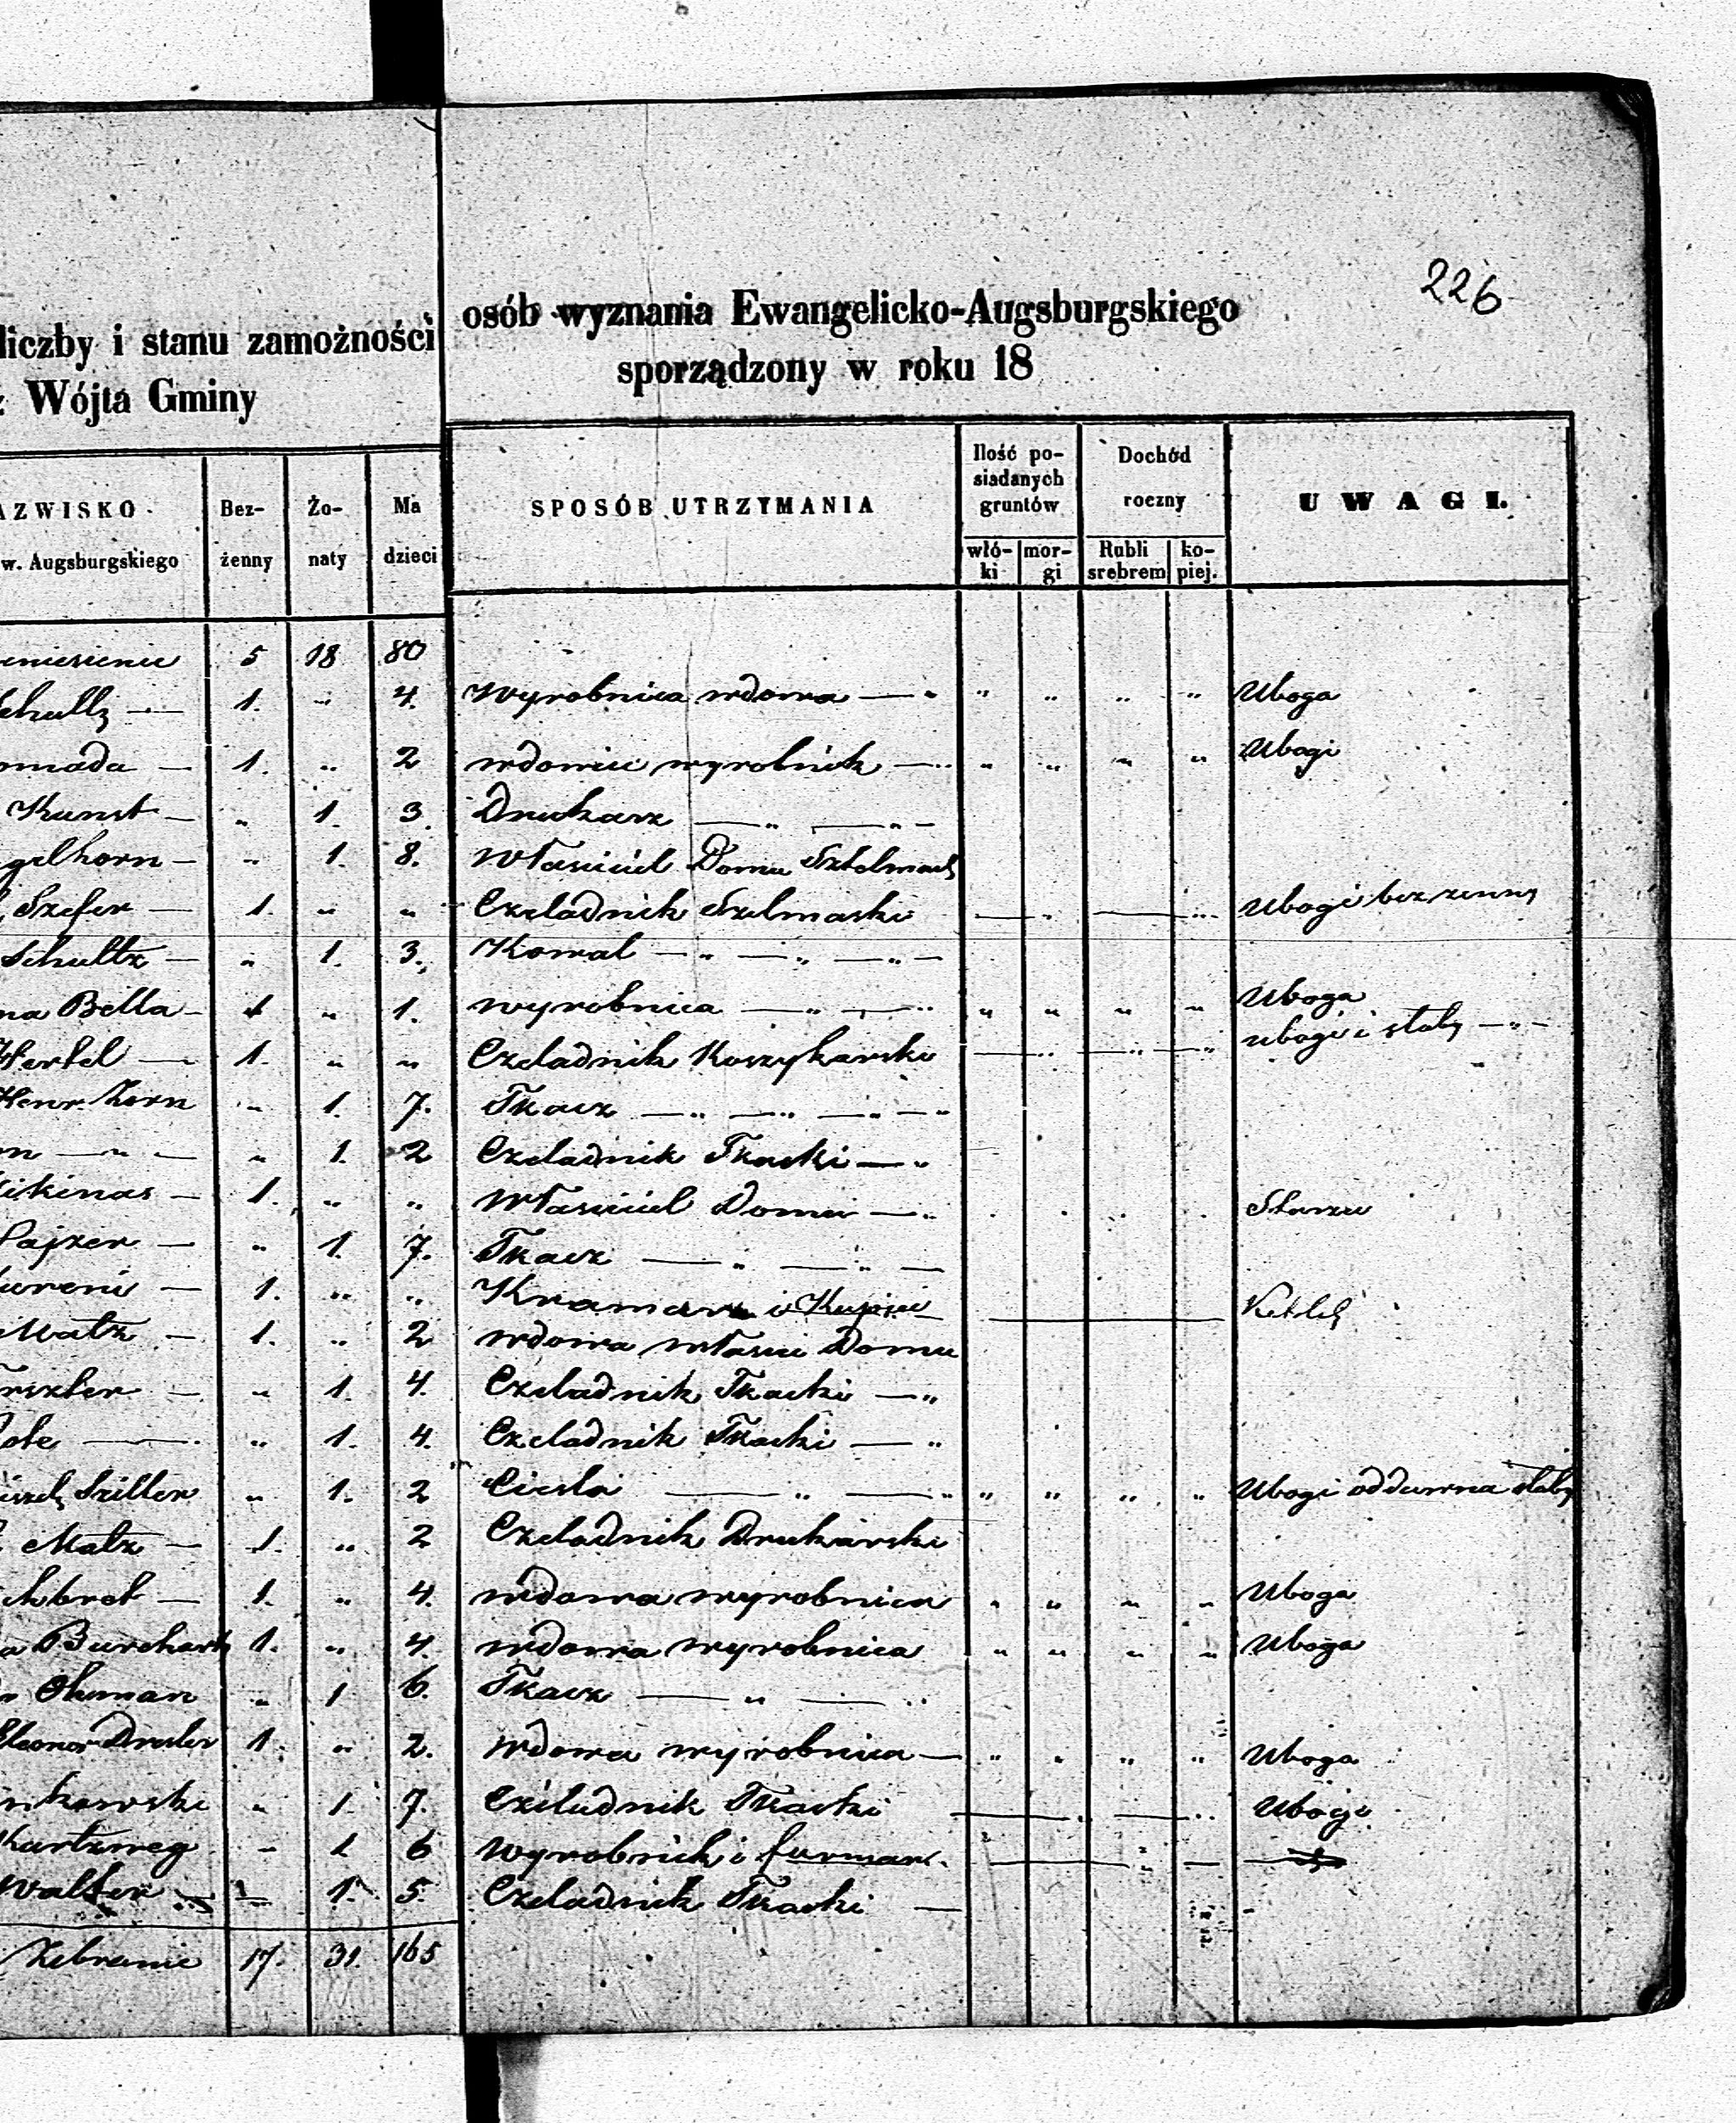 226
liczby i stanu zamożności osób wyznania Ewangelicko-Augsburgskiego
Wójta Gminy sporządzony w roku 18
AZWISKO Bez- Żo- Ma SPOSÓB UTRZYMANIA Ilość po- Dochód UWAGI.
w. Augsburgskiego żenny naty dzieci siadanych roczny
gruntów
włó- mor- Rubli ko-
ki gi srebrem piej.
5 18 80
1. " 4. Wyrobnica wdowa — " " " " " Uboga
omada — 1. " 2 wdowiec wyrobnik — " " " " " Ubogi
Kunst — " 1. 3. Drukarz — " — " —
gelhorn — " 1. 8. Właściciel Domu Sztelmach
Szefer — 1. " " Czeladnik Szelmaski — " — " Ubogi bezzenny
Schultz — " 1. 3. Kowal — " — " — " —
na Bella — 1 " 1. wyrobnica — " — " " " " " Uboga
Hertel — 1. " " Czeladnik Koszykarski — " — " — " ubogi i słaby — " —
Henr. Korn " 1. 7. Tkacz — " — " — " — "
n — " — " 1. 2 Czeladnik Tkacki — "
ikinas — 1. " " Właściciel Domu — " Starzec
Pajzer — " 1. 7. Tkacz — " — " —
1. " " Kramarz i Kupiec —
Matz — 1. " 2 wdowa właści Domu
rszter — " 1. 4. Czeladnik Tkacki — "
ole — " 1. 4. Czeladnik Tkacki — "
Sziller " 1. 2 Cieśla — " — " " " " " Ubogi oddawna słaby
Matz — 1. " 2 Czeladnik Drukarski
chbret — 1. " 4. wdowa wyrobnica " " " " Uboga
a Burchart 1. " 4. wdowa wyrobnica " " " " Uboga
Ohman " 1 6. Tkacz — " — "
Eleonor Dresler 1. " 2. Wdowa wyrobnica — " " " " Uboga
nkowski " 1. 7. Czeladnik Tkacki — " — " Ubogi
Kurtzweg " 1 6 wyrobnik i furman. — —
Walter — 1. 5. Czeladnik Tkacki —
Zebranie 17. 31. 165